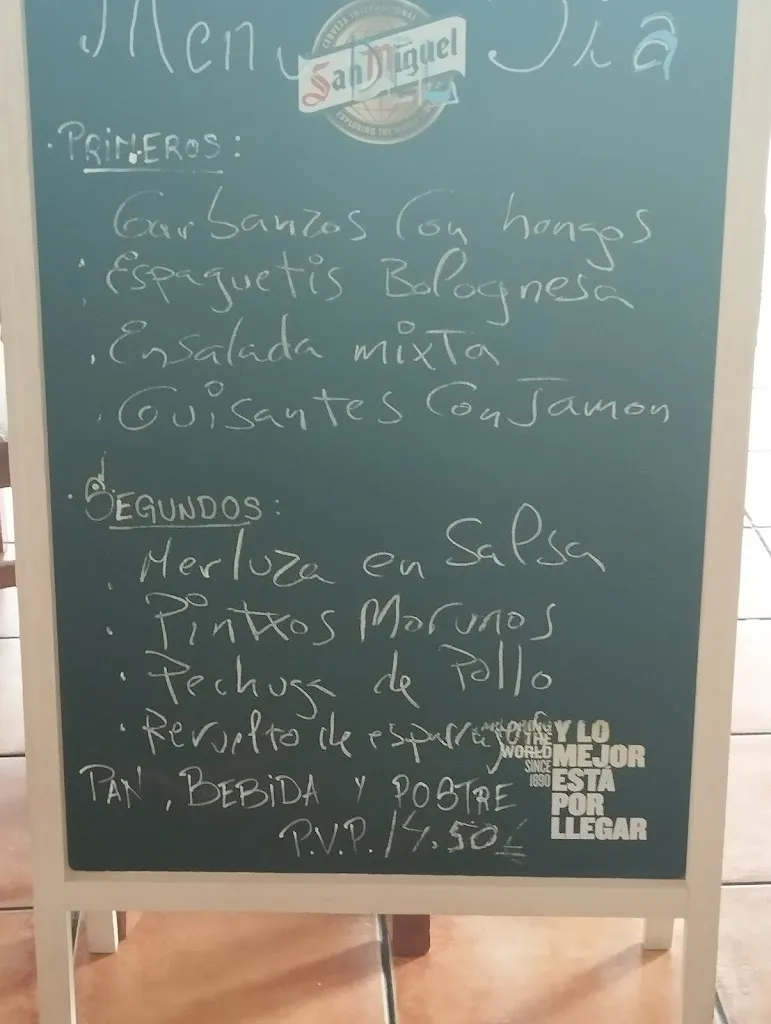 Menu Dia
CERVEZA INTERNACIONAL
San Miguel
EXPLORING THE WORLD
· PRIMEROS:
Garbanzos Con hongos
· Espaguetis Bolognesa
· Ensalada mixTa
· Guisantes Con Jamon
· SEGUNDOS:
· Merluza en Salsa
· Pintxos Morunos
· Pechuga de Pollo
· Revuelto de esparragos
PAN, BEBIDA Y POSTRE
P.V.P. 14.50€
EXPLORING
THE
WORLD
SINCE
1890
Y LO
MEJOR
ESTÁ
POR
LLEGAR